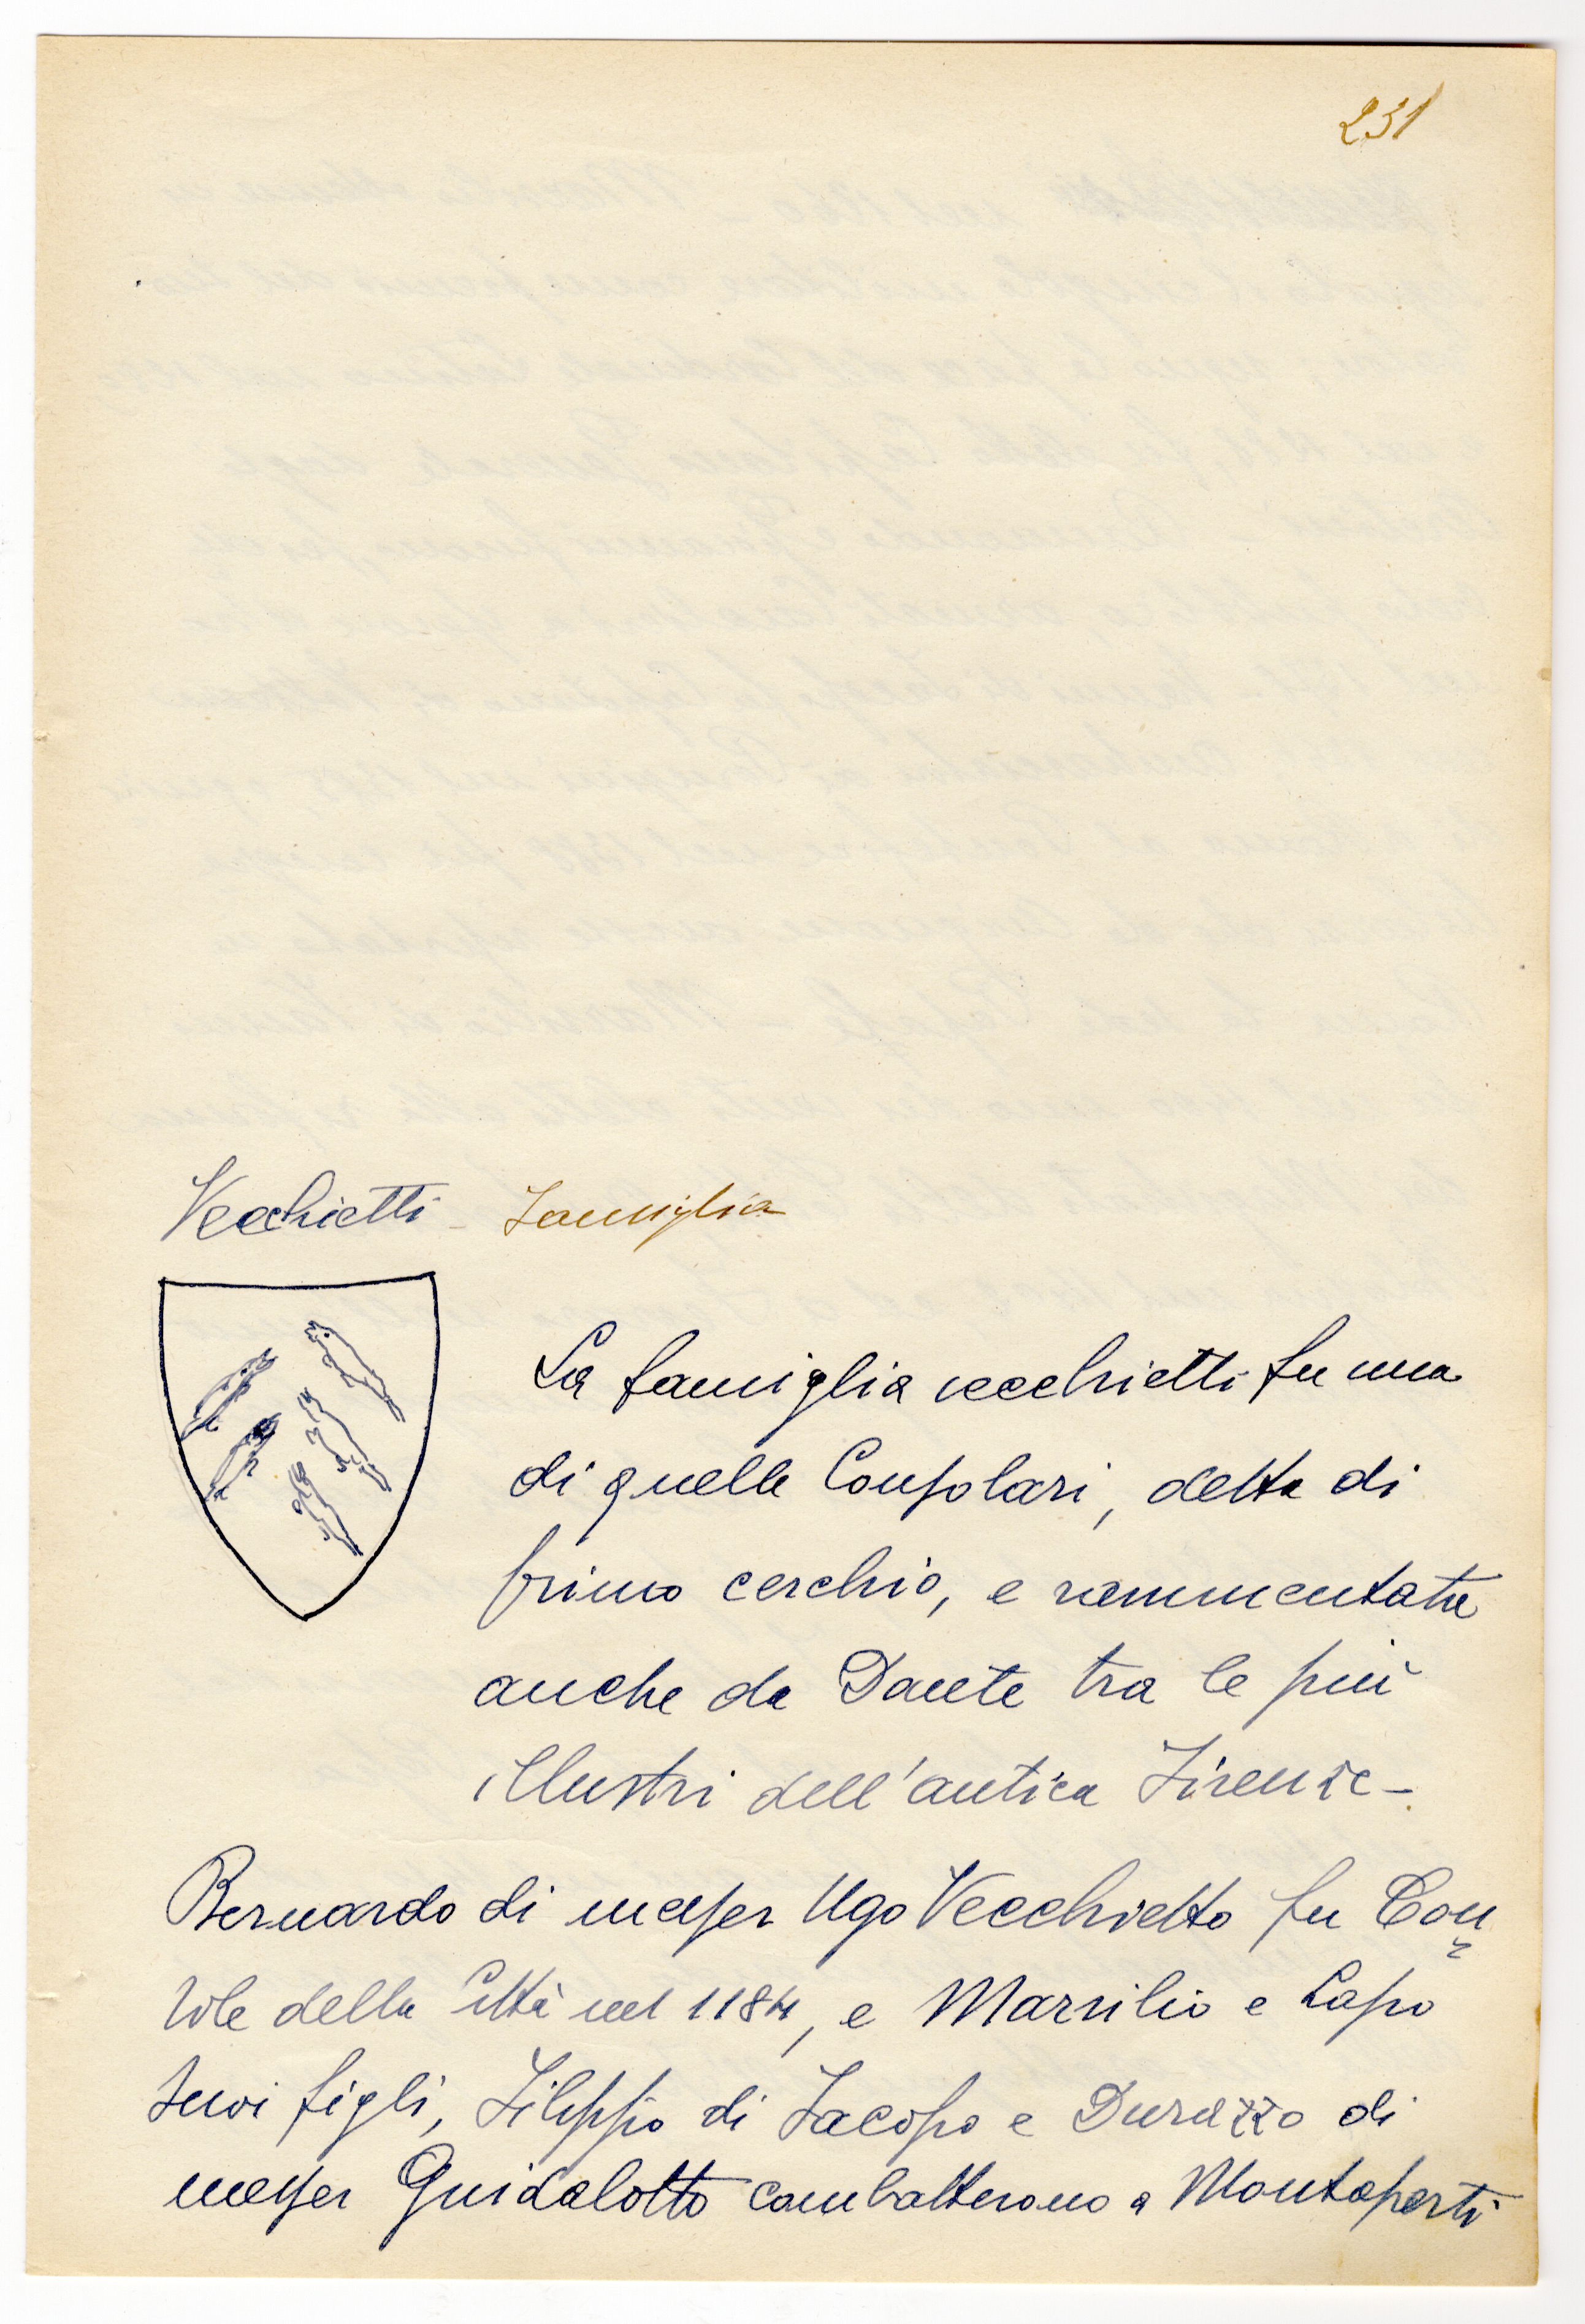 231
Vecchietti - Famiglia
La famiglia vecchietti fu una
di quelle Consolari, detta di
primo cerchio, e rammentata
anche da Dante tra le più
illustri dell'antica Firenze -
Bernardo di messer Ugo Vecchietto fu Con
sole della Città nel 1184, e Marsilio e Lapo
suoi figli, Filippo di Jacopo e Durazzo di
messer Guidalotto combatterono a Montaperti